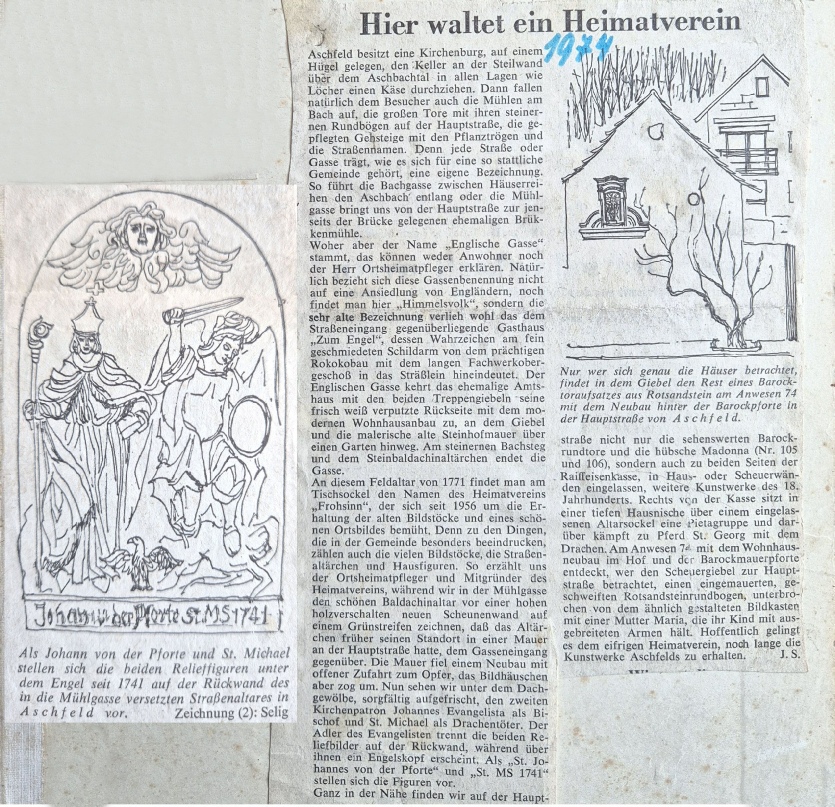 Hier waltet ein Heimatverein
1974
Aschfeld besitzt eine Kirchenburg, auf einem
Hügel gelegen, den Keller an der Steilwand
über dem Aschbachtal in allen Lagen wie
Löcher einen Käse durchziehen. Dann fallen
natürlich dem Besucher auch die Mühlen am
Bach auf, die großen Tore mit ihren steiner-
nen Rundbögen auf der Hauptstraße, die ge-
pflegten Gehsteige mit den Pflanztrögen und
die Straßennamen. Denn jede Straße oder
Gasse trägt, wie es sich für eine so stattliche
Gemeinde gehört, eine eigene Bezeichnung.
So führt die Bachgasse zwischen Häuserrei-
hen den Aschbach entlang oder die Mühl-
gasse bringt uns von der Hauptstraße zur jen-
seits der Brücke gelegenen ehemaligen Brük-
kenmühle.
Woher aber der Name „Englische Gasse“
stammt, das können weder Anwohner noch
der Herr Ortsheimatpfleger erklären. Natür-
lich bezieht sich diese Gassenbenennung nicht
auf eine Ansiedlung von Engländern, noch
findet man hier „Himmelsvolk“, sondern die
sehr alte Bezeichnung verlieh wohl das dem
Straßeneingang gegenüberliegende Gasthaus
„Zum Engel“, dessen Wahrzeichen am fein
geschmiedeten Schildarm von dem prächtigen
Rokokobau mit dem langen Fachwerkober-
geschoß in das Sträßlein hineindeutet. Der
Englischen Gasse kehrt das ehemalige Amts-
haus mit den beiden Treppengiebeln seine
frisch weiß verputzte Rückseite mit dem mo-
dernen Wohnhausanbau zu, an dem Giebel
und die malerische alte Steinhofmauer über
einen Garten hinweg. Am steinernen Bachsteg
und dem Steinbaldachinaltärchen endet die
Gasse.
An diesem Feldaltar von 1771 findet man am
Tischsockel den Namen des Heimatvereins
„Frohsinn“, der sich seit 1956 um die Er-
haltung der alten Bildstöcke und eines schö-
nen Ortsbildes bemüht. Denn zu den Dingen,
die in der Gemeinde besonders beeindrucken,
zählen auch die vielen Bildstöcke, die Straßen-
altärchen und Hausfiguren. So erzählt uns
der Ortsheimatpfleger und Mitgründer des
Heimatvereins, während wir in der Mühlgasse
den schönen Baldachinaltar vor einer hohen
holzverschalten neuen Scheunenwand auf
einem Grünstreifen zeichnen, daß das Altär-
chen früher seinen Standort in einer Mauer
an der Hauptstraße hatte, dem Gasseneingang
gegenüber. Die Mauer fiel einem Neubau mit
offener Zufahrt zum Opfer, das Bildhäuschen
aber zog um. Nun sehen wir unter dem Dach-
gewölbe, sorgfältig aufgefrischt, den zweiten
Kirchenpatron Johannes Evangelista als Bi-
schof und St. Michael als Drachentöter. Der
Adler des Evangelisten trennt die beiden Re-
liefbilder auf der Rückwand, während über
ihnen ein Engelskopf erscheint. Als „St. Jo-
hannes von der Pforte“ und „St. MS 1741“
stellen sich die Figuren vor.
Ganz in der Nähe finden wir auf der Haupt-
Nur wer sich genau die Häuser betrachtet,
findet in dem Giebel den Rest eines Barock-
toraufsatzes aus Rotsandstein am Anwesen 74
mit dem Neubau hinter der Barockpforte in
der Hauptstraße von Aschfeld.
straße nicht nur die sehenswerten Barock-
rundtore und die hübsche Madonna (Nr. 105
und 106), sondern auch zu beiden Seiten der
Raiffeisenkasse, in Haus- oder Scheuerwän-
den eingelassen, weitere Kunstwerke des 18.
Jahrhunderts. Rechts von der Kasse sitzt in
einer tiefen Hausnische über einem eingelas-
senen Altarsockel eine Pietagruppe und dar-
über kämpft zu Pferd St. Georg mit dem
Drachen. Am Anwesen 74 mit dem Wohnhaus-
neubau im Hof und der Barockmauerpforte
entdeckt, wer den Scheuergiebel zur Haupt-
straße betrachtet, einen eingemauerten, ge-
schweiften Rotsandsteinrundbogen, unterbro-
chen von dem ähnlich gestalteten Bildkasten
mit einer Mutter Maria, die ihr Kind mit aus-
gebreiteten Armen hält. Hoffentlich gelingt
es dem eifrigen Heimatverein, noch lange die
Kunstwerke Aschfelds zu erhalten. J. S.
Johann v der Pforte St. MS 1741
Als Johann von der Pforte und St. Michael
stellen sich die beiden Relieffiguren unter
dem Engel seit 1741 auf der Rückwand des
in die Mühlgasse versetzten Straßenaltares in
Aschfeld vor. Zeichnung (2): Selig